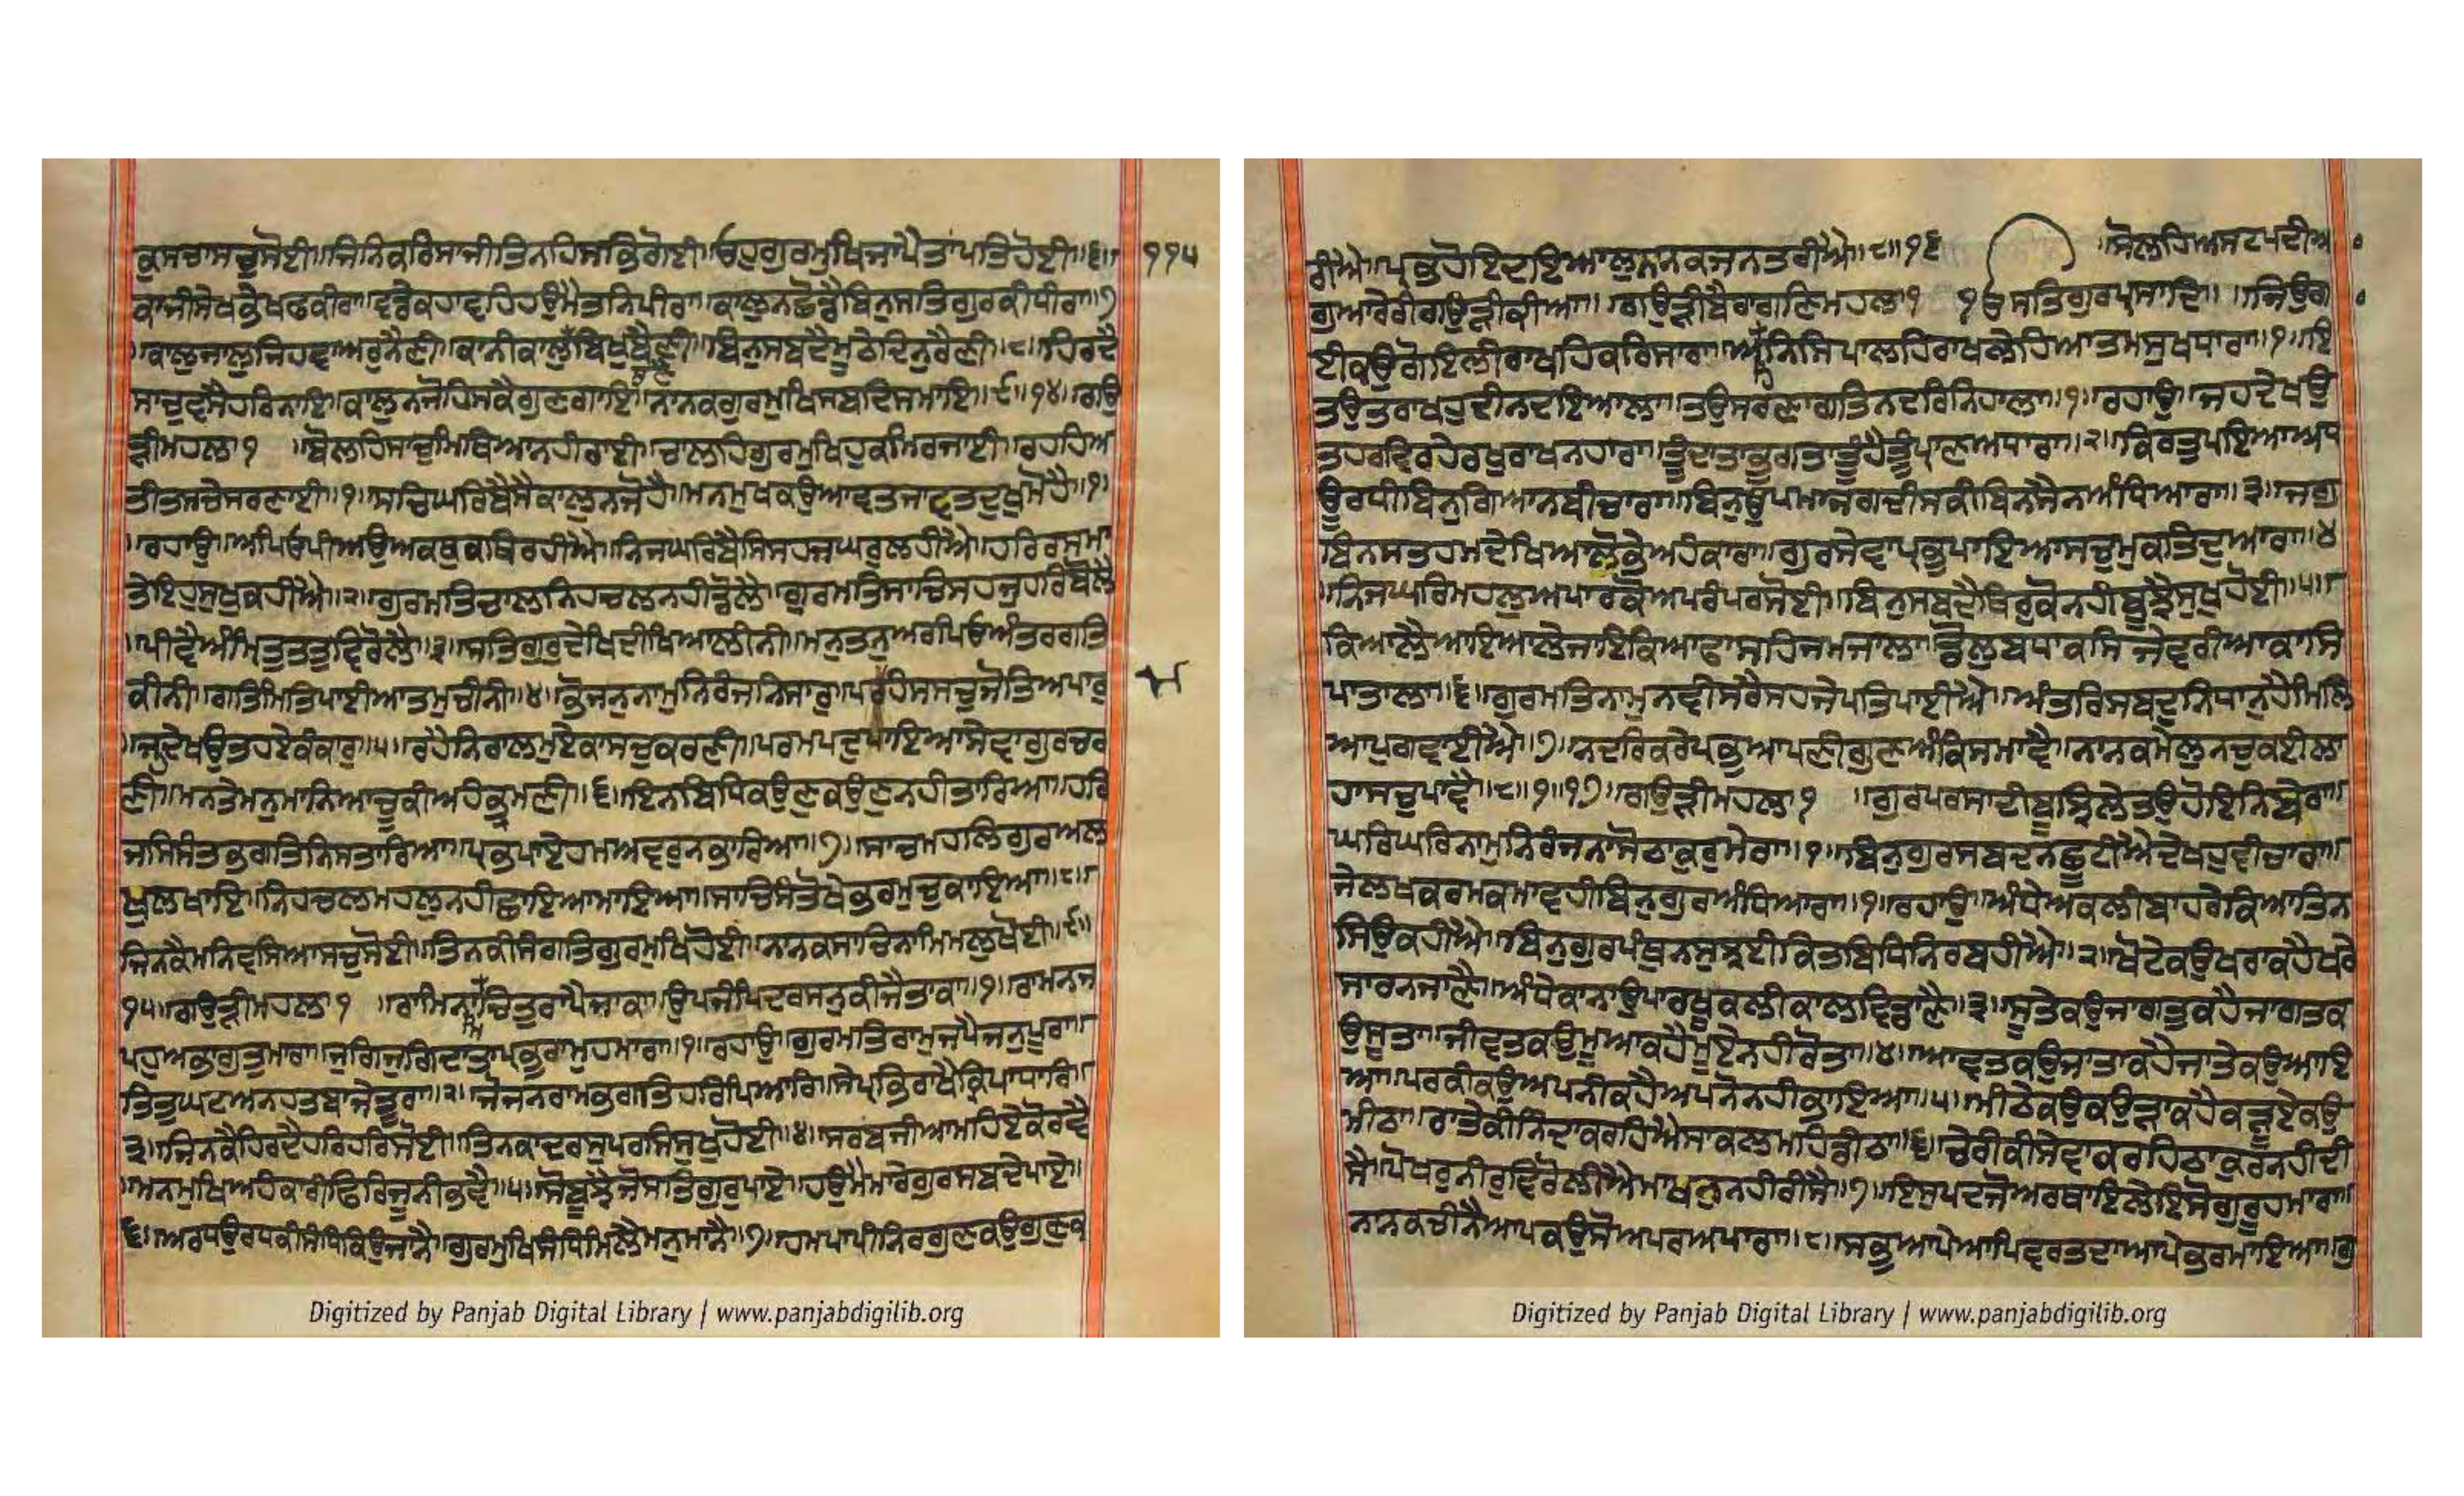 ਕੁਸਚਾਸਚੁਸੋਈ॥ਜਿਨਿਕਰਿਸਾਜੀਤਿਨਹਿਸਭਿਗੋਈ॥ਓਹੁਗੁਰਮੁਖਿਜਾਪੈਤਾਂਪਤਿਹੋਈ॥੬॥ ੧੧੫
ਕਾਜੀਸੇਖਭੇਖਫਕੀਰਾ॥ਵਡੇਕਹਾਵਹਿਹਉਮੈਤਨਿਪੀਰਾ॥ਕਾਲੁਨਛੋਡੈਬਿਨੁਸਤਿਗੁਰਕੀਧੀਰਾ॥੭
॥ਕਾਲੁਜਾਲੁਜਿਹਵਾਅਰੁਨੈਣੀ॥ਕਾਨੀਕਾਲੁਬਿਖੁਬੈਣੀ॥ਬਿਨੁਸਬਦੈਮੂਠੇਦਿਨੁਰੈਣੀ॥੮॥ਹਿਰਦੈ
ਸਾਚੁਵਸੈਹਰਿਨਾਇ॥ਕਾਲੁਨਜੋਹਿਸਕੈਗੁਣਗਾਇ॥ਨਾਨਕਗੁਰਮੁਖਿਸਬਦਿਸਮਾਇ॥੯॥੧੪॥ਗਉ
ੜੀਮਹਲਾ੧ ॥ਬੋਲਹਿਸਾਚੁਮਿਥਿਆਨਹੀਰਾਈ॥ਚਾਲਹਿਗੁਰਮੁਖਿਹੁਕਮਿਰਜਾਈ॥ਰਹਹਿਅ
ਤੀਤਸਚੇਸਰਣਾਈ॥੧॥ਸਚਿਘਰਿਬੈਸੈਕਾਲੁਨਜੋਹੈ॥ਮਨਮੁਖਕਉਆਵਤਜਾਵਤਦੁਖੁਮੋਹੈ॥੧॥
॥ਰਹਾਉ॥ਅਪਿਓਪੀਅਉਅਕਥੁਕਥਿਰਹੀਐ॥ਨਿਜਘਰਿਬੈਸਿਸਹਜਘਰੁਲਹੀਐ॥ਹਰਿਰਸਮਾ
ਤੇਇਹੁਸੁਖੁਕਹੀਐ॥੨॥ਗੁਰਮਤਿਚਾਲਨਿਹਚਲਨਹੀਡੋਲੈ॥ਗੁਰਮਤਿਸਾਚਿਸਹਜੁਹਰਿਬੋਲੈ
॥ਪੀਵੈਅੰਮ੍ਰਿਤੁਤਤੁਵਿਰੋਲੈ॥੩॥ਸਤਿਗੁਰੁਦੇਖਿਦੀਖਿਆਲੀਨੀ॥ਮਨੁਤਨੁਅਰਪਿਓਅੰਤਰਗਤਿ
ਕੀਨੀ॥ਗਤਿਮਿਤਿਪਾਈਆਤਮੁਚੀਨੀ॥੪॥ਭੋਜਨੁਨਾਮੁਨਿਰੰਜਨਿਸਾਰੁ॥ਪਰਹੰਸਸਚੁਜੋਤਿਅਪਾਰੁ
॥ਜਹਦੇਖਉਤਹਏਕੰਕਾਰੁ॥੫॥ਰਹੈਨਿਰਾਲਮੁਏਕਾਸਚੁਕਰਣੀ॥ਪਰਮਪਦੁਪਾਇਆਸੇਵਾਗੁਰਚਰ
ਣੀ॥ਮਨਤੇਮਨੁਮਾਨਿਆਚੂਕੀਅਹੰਭ੍ਰਮਣੀ॥੬॥ਇਨਬਿਧਿਕਉਣੁਕਉਣੁਨਹੀਤਾਰਿਆ॥ਹਰਿ
ਜਸਿਸੰਤਭਗਤਿਨਿਸਤਾਰਿਆ॥ਪ੍ਰਭਪਾਏਹਮਅਵਰੁਨਭਾਰਿਆ॥੭॥ਸਾਚਮਹਲਿਗੁਰਅਲ
ਖੁਲਖਾਇ॥ਨਿਹਚਲਮਹਲੁਨਹੀਛਾਇਆਮਾਇਆ॥ਸਾਚਿਸੰਤੋਖੇਭਰਮੁਚੁਕਾਇਆ॥੮॥
ਜਿਨਕੈਮਨਿਵਸਿਆਸਚੁਸੋਈ॥ਤਿਨਕੀਸੰਗਤਿਗੁਰਮੁਖਿਹੋਈ॥ਨਾਨਕਸਾਚਿਨਾਮਿਮਲੁਖੋਈ॥੯॥
੧੫॥ਗਉੜੀਮਹਲਾ੧ ॥ਰਾਮਿਨਾਮਿਚਿਤੁਰਾਪੈਜਾਕਾ॥ਉਪਜੰਪਿਦਰਸਨੁਕੀਜੈਤਾਕਾ॥੧॥ਰਾਮਨਜ
ਪਹੁਅਭਾਗੁਤੁਮਾਰਾ॥ਜੁਗਿਜੁਗਿਦਾਤਾਪ੍ਰਭੁਰਾਮੁਹਮਾਰਾ॥੧॥ਰਹਾਉ॥ਗੁਰਮਤਿਰਾਮੁਜਪੈਜਨੁਪੂਰਾ॥
ਤਿਤੁਘਟਅਨਹਤਬਾਜੇਤੂਰਾ॥੨॥ਜੋਜਨਰਾਮਭਗਤਿਹਰਿਪਿਆਰਿ॥ਸੇਪ੍ਰਭਿਰਾਖੇਕਿਰਪਾਧਾਰਿ॥
੩॥ਜਿਨਕੈਹਿਰਦੈਹਰਿਹਰਿਸੋਈ॥ਤਿਨਕਾਦਰਸੁਪਰਸਿਸੁਖੁਹੋਈ॥੪॥ਸਰਬਜੀਆਮਹਿਏਕੋਰਵੈ
॥ਮਨਮੁਖਿਅਹੰਕਾਰੀਫਿਰਿਜੂਨੀਭਵੈ॥੫॥ਸੋਬੂਝੈਜੋਸਤਿਗੁਰੁਪਾਏ॥ਹਉਮੈਮਾਰੇਗੁਰਸਬਦੇਪਾਏ॥
੬॥ਅਰਧਉਰਧਕੀਸੰਧਿਕਿਉਜਾਨੈ॥ਗੁਰਮੁਖਿਸੰਧਿਮਿਲੈਮਨੁਮਾਨੈ॥੭॥ਹਮਪਾਪੀਨਿਰਗੁਣਕਉਗੁਣੁਕ
Digitized by Panjab Digital Library | www.panjabdigilib.org
ਰੀਐ॥ਪ੍ਰਭਹੋਇਦਇਆਲੁਨਾਨਕਜਨਤਰੀਐ॥੮॥੧੬ ॥ਸੋਲਹਅਸਟਪਦੀਅ
ਗੁਆਰੇਰੀਗਉੜੀਕੀਆ॥ ਗਉੜੀਬੈਰਾਗਣਿਮਹਲਾ੧ ੴਸਤਿਗੁਰਪ੍ਰਸਾਦਿ॥ ॥ਜਿਉਗਾ
ਈਕਉਗੋਇਲੀਰਾਖਹਿਕਰਿਸਾਰਾ॥ਅਹਿਨਿਸਿਪਾਲਹਿਰਾਖਲੇਹਿਆਤਮਸੁਖਧਾਰਾ॥੧॥ਇ
ਤਉਤਰਾਖਹੁਦੀਨਦਇਆਲਾ॥ਤਉਸਰਣਾਗਤਿਨਦਰਿਨਿਹਾਲਾ॥੧॥ਰਹਾਉ॥ਜਹਦੇਖਉ
ਤਹਰਵਿਰਹੇਰਖੁਰਾਖਨਹਾਰਾ॥ਤੂੰਦਾਤਾਭੁਗਤਾਤੂੰਹੈਤੂੰਪ੍ਰਾਣਅਧਾਰਾ॥੨॥ਕਿਰਤੁਪਇਆਅਧ
ਊਰਧੀਬਿਨੁਗਿਆਨਬੀਚਾਰਾ॥ਬਿਨੁਉਪਮਾਜਗਦੀਸਕੀਬਿਨਸੈਨਅੰਧਿਆਰਾ॥੩॥ਜਗੁ
ਬਿਨਸਤਹਮਦੇਖਿਆਲੋਭੇਅਹੰਕਾਰਾ॥ਗੁਰਸੇਵਾਪ੍ਰਭੁਪਾਇਆਸਚੁਮੁਕਤਿਦੁਆਰਾ॥੪
॥ਨਿਜਘਰਿਮਹਲੁਅਪਾਰਕੋਅਪਰੰਪਰਸੋਈ॥ਬਿਨੁਸਬਦੈਥਿਰੁਕੋਨਹੀਬੂਝੈਸੁਖੁਹੋਈ॥੫॥
ਕਿਆਲੈਆਇਆਲੇਜਾਇਕਿਆਫਾਸਹਿਜਮਜਾਲਾ॥ਡੋਲੁਬਧਾਕਸਿਜੇਵਰੀਆਕਾਸਿ
ਪਾਤਾਲਾ॥੬॥ਗੁਰਮਤਿਨਾਮੁਨਵੀਸਰੈਸਹਜੇਪਤਿਪਾਈਐ॥ਅੰਤਰਿਸਬਦੁਨਿਧਾਨੁਹੈਮਿਲਿ
ਆਪੁਗਵਾਈਐ॥੭॥ਨਦਰਿਕਰੇਪ੍ਰਭੁਆਪਣੀਗੁਣਅੰਕਿਸਮਾਵੈ॥ਨਾਨਕਮੇਲੁਨਚੂਕਈਲਾ
ਹਾਸਚੁਪਾਵੈ॥੮॥੧॥੧੭॥ਗਉੜੀਮਹਲਾ੧ ॥ਗੁਰਪਰਸਾਦੀਬੂਝਿਲੇਤਉਹੋਇਨਿਬੇਰਾ॥
ਘਰਿਘਰਿਨਾਮੁਨਿਰੰਜਨਾਸੋਠਾਕੁਰੁਮੇਰਾ॥੧॥ਬਿਨੁਗੁਰਸਬਦਨਛੂਟੀਐਦੇਖਹੁਵੀਚਾਰਾ॥
ਜੇਲਖਕਰਮਕਮਾਵਹੀਬਿਨੁਗੁਰਅੰਧਿਆਰਾ॥੧॥ਰਹਾਉ॥ਅੰਧੇਅਕਲੀਬਾਹਰੇਕਿਆਤਿਨ
ਸਿਉਕਹੀਐ॥ਬਿਨੁਗੁਰਪੰਥੁਨਸੂਝਈਕਿਤੁਬਿਧਿਨਿਰਬਹੀਐ॥੨॥ਖੋਟੇਕਉਖਰਾਕਹੈਖਰੇ
ਸਾਰਨਜਾਣੈ॥ਅੰਧੇਕਾਨਾਉਪਾਰਖੂਕਲੀਕਾਲਵਿਡਾਣੈ॥੩॥ਸੂਤੇਕਉਜਾਗਤੁਕਹੈਜਾਗਤਕ
ਉਸੂਤਾ॥ਜੀਵਤਕਉਮੂਆਕਹੈਮੂਏਨਹੀਰੋਤਾ॥੪॥ਆਵਤਕਉਜਾਤਾਕਹੈਜਾਤੇਕਉਆਇ
ਆ॥ਪਰਕੀਕਉਅਪਨੀਕਹੈਅਪਨੋਨਹੀਭਾਇਆ॥੫॥ਮੀਠੇਕਉਕਉੜਾਕਹੈਕੜੂਏਕਉ
ਮੀਠਾ॥ਰਾਤੇਕੀਨਿੰਦਾਕਰਹਿਐਸਾਕਲਮਹਿਡੀਠਾ॥੬॥ਚੇਰੀਕੀਸੇਵਾਕਰਹਿਠਾਕੁਰਨਹੀਦੀ
ਸੈ॥ਪੋਖਰੁਨੀਰੁਵਿਰੋਲੀਐਮਾਖਨੁਨਹੀਰੀਸੈ॥੭॥ਇਸੁਪਦਜੋਅਰਥਾਇਲੇਇਸੋਗੁਰੂਹਮਾਰਾ॥
ਨਾਨਕਚੀਨੈਆਪਕਉਸੋਅਪਰਅਪਾਰਾ॥੮॥ਸਭੁਆਪੇਆਪਿਵਰਤਦਾਆਪੇਭਰਮਾਇਆ॥ਗੁ
Digitized by Panjab Digital Library | www.panjabdigilib.org